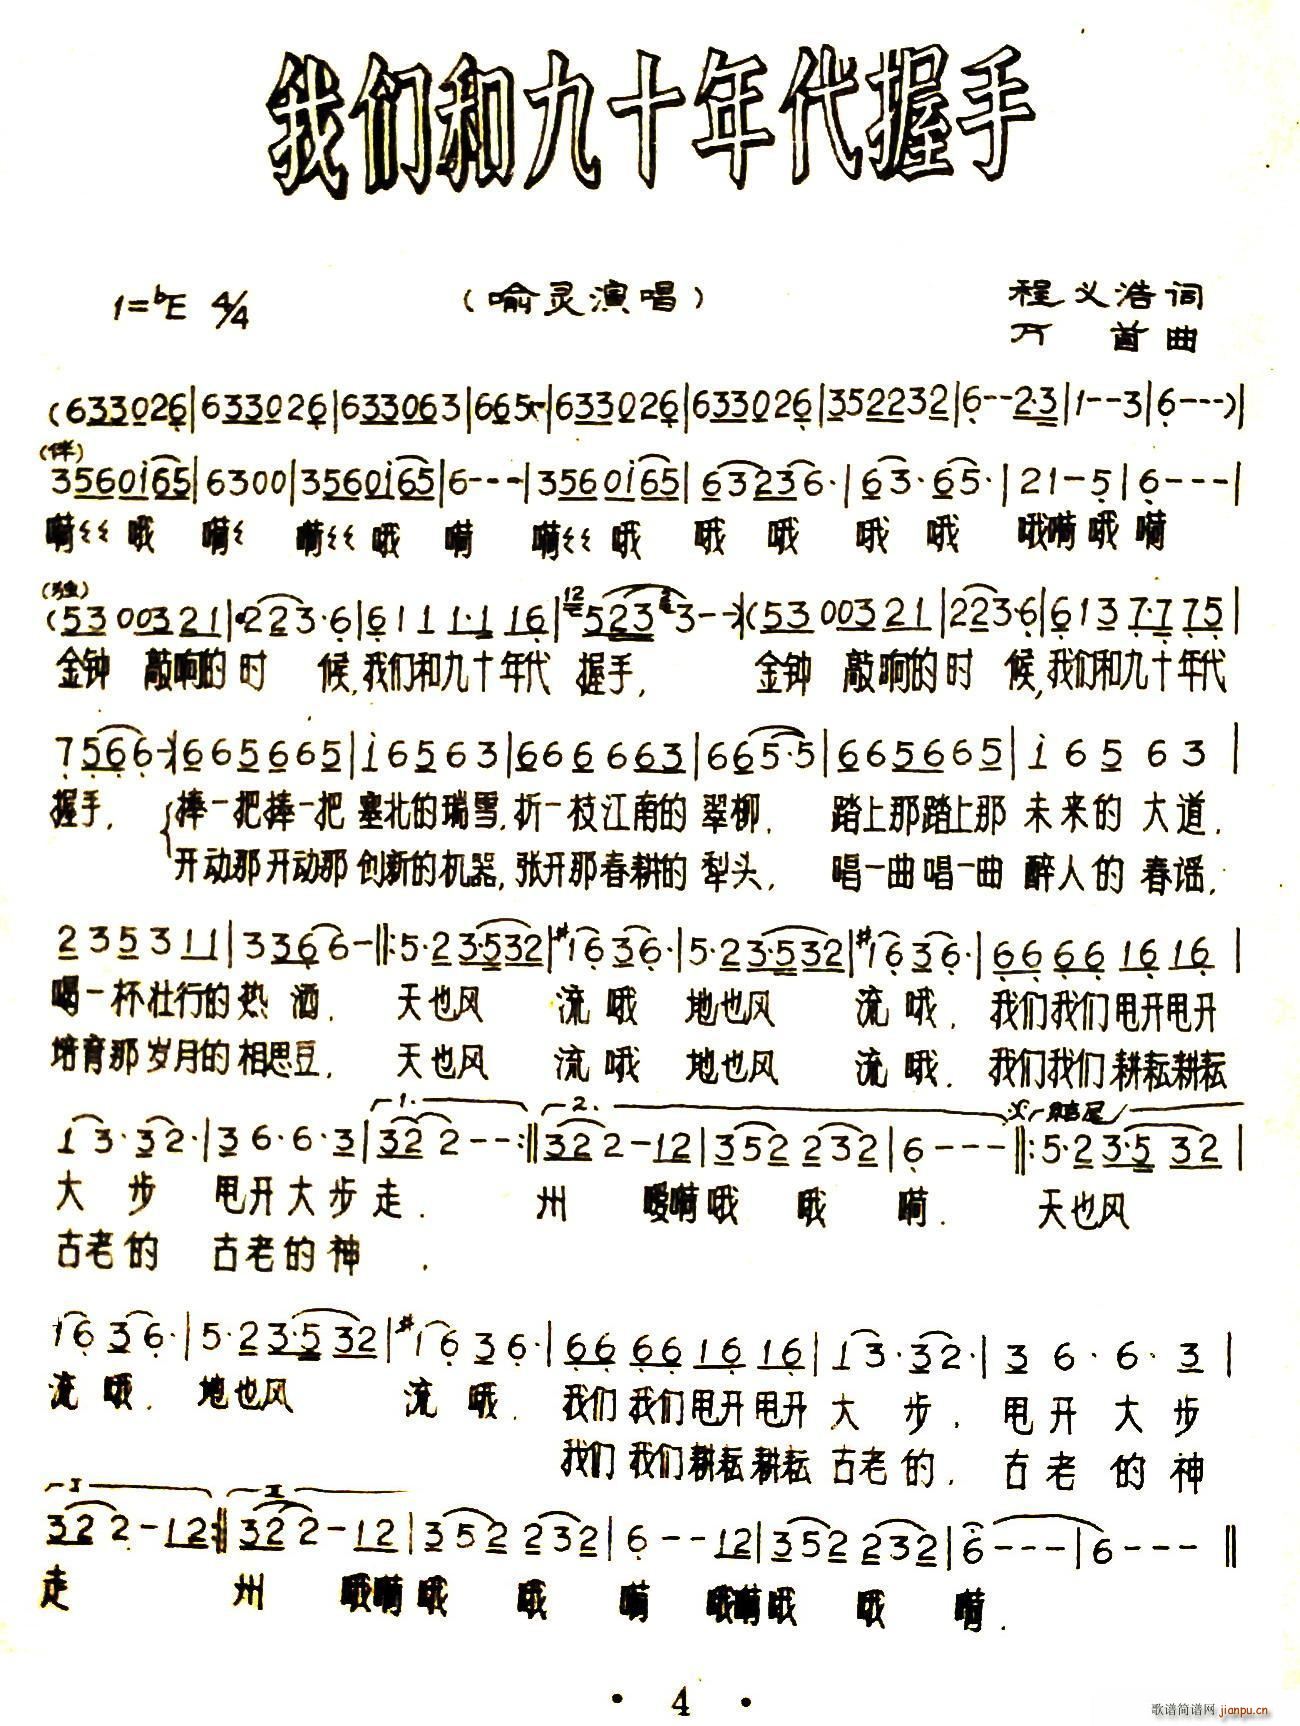 我们和九十年代握手
1=♭E 4/4 (喻灵演唱) 程义浩词
万首曲
(633026|633026|633063|665-|633026|633026|352232|6--2·3|1--3|6---)|
(伴)
3560i65|6300|3560i65|6---|3560i65|63236·|63·65·|21-5|6---|
嗬 哦 嗬 嗬 哦 嗬 嗬 哦 哦 哦 哦 哦 哦嗬哦嗬
(独)
(5300321|·223·6|6111·116|5233--)|(5300321|223·6|6137·775|
金钟 敲响的时 候,我们和九十年代 握手, 金钟 敲响的时 候,我们和九十年代
7566-|665665|i6563|666663|6655·5|665665|i6563|
握手, 捧一把捧一把 塞北的瑞雪,折一枝江南的 翠柳, 踏上那踏上那 未来的 大道,
开动那开动那 创新的机器,张开那春耕的 犁头, 唱一曲唱一曲 醉人的 春谣,
235311|3366-‖:5·23·532|#1636·|5·23·532|#1636·|66661616|
喝一杯壮行的热 酒, 天也风 流哦 地也风 流哦, 我们我们甩开甩开
培育那岁月的相思豆, 天也风 流哦 地也风 流哦, 我们我们耕耘耕耘
1. 2. 结尾
13·32·|36·6·3|322--:‖322-12|352232|6---‖:5·23·532|
大步 甩开大步走. 州 嗳嗬哦 哦 嗬. 天也风
古老的 古老的神 .
1636·|5·23·532|#1636·|66661616|13·32·|36·6·3|
流哦. 地也风 流哦. 我们我们甩开甩开 大步, 甩开大步
我们我们耕耘耕耘 古老的, 古老的神
I II
322-12:‖322-12|352232|6--12|352232|6---|6---‖
走 州 哦嗬哦 哦 嗬 哦嗬哦 哦 嗬.
· 4 ·
歌谱简谱网
jianpu.cn